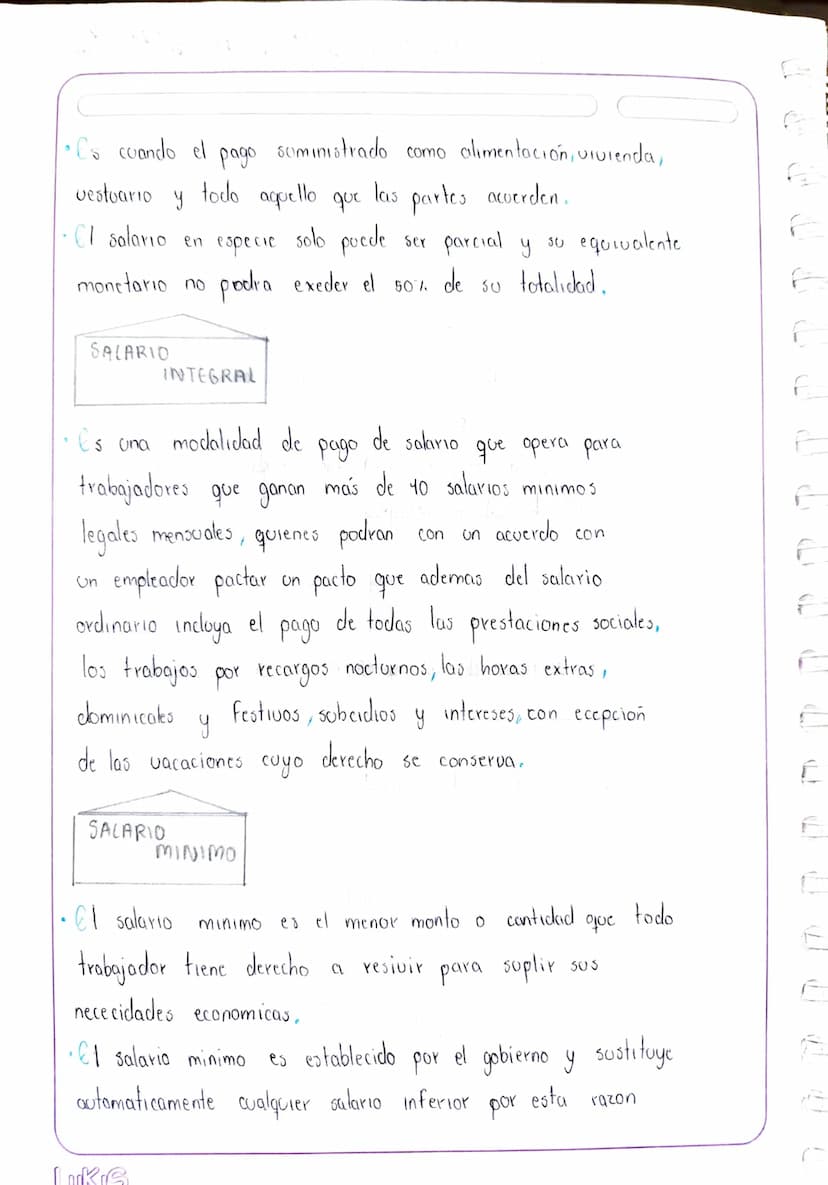 • Es cuando el pago suministrado como alimentación, vivienda,
vestuario y todo aquello que las partes acuerden.
• El salario en especie solo puede ser parcial y su equivalente
monetario no podra exeder el 50% de su totalidad.
SALARIO
INTEGRAL
• Es una modalidad de pago de salario que opera para
trabajadores que ganan más de 10 salarios minimos
legales mensuales, quienes podran con un acuerdo con
un empleador pactar un pacto que ademas del salario
ordinario incluya el pago de todas las prestaciones sociales,
los trabajos por recargos nocturnos, las horas extras,
dominicales y festivos, subcidios y intereses, con ecepción
de las vacaciones cuyo derecho se conserva.
SALARIO
MINIMO
• El salario minimo es el menor monto o cantidad que todo
trabajador tiene derecho a resivir para suplir sus
nececidades economicas.
• El salario minimo es establecido por el gobierno y sustituye
automaticamente cualquier salario inferior por esta razon